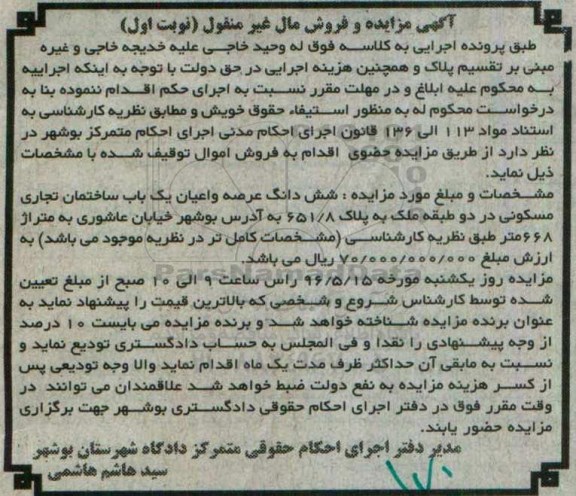 آگهی مزایده و فروش مال غیر منقول (نوبت اول)
طبق پرونده اجرایی به کلاسه فوق له وحید خاجی علیه خدیجه خاجی و غیره
مبنی بر تقسیم پلاک و همچنین هزینه اجرایی در حق دولت با توجه به اینکه اجراییه
به محکوم علیه ابلاغ و در مهلت مقرر نسبت به اجرای حکم اقدام ننموده بنا به
درخواست محکوم له به منظور استیفاء حقوق خویش و مطابق نظریه کارشناسی به
استناد مواد ۱۱۳ الی ۱۳۶ قانون اجرای احکام مدنی اجرای احکام متمرکز بوشهر در
نظر دارد از طریق مزایده حضوی اقدام به فروش اموال توقیف شده با مشخصات
ذیل نماید.
مشخصات و مبلغ مورد مزایده : شش دانگ عرصه واعیان یک باب ساختمان تجاری
مسکونی در دو طبقه ملک به پلاک ۶۵۱/۸ به آدرس بوشهر خیابان عاشوری به متراژ
۶۶۸متر طبق نظریه کارشناسی (مشخصات کامل تر در نظریه موجود می باشد) به
ارزش مبلغ ۷۰/۰۰۰/۰۰۰/۰۰۰ ریال می باشد.
مزایده روز یکشنبه مورخه ۹۶/۵/۱۵ راس ساعت ۹ الی ۱۰ صبح از مبلغ تعیین
شده توسط کارشناس شروع و شخصی که بالاترین قیمت را پیشنهاد نماید به
عنوان برنده مزایده شناخته خواهد شد و برنده مزایده می بایست ۱۰ درصد
از وجه پیشنهادی را نقدا و فی المجلس به حساب دادگستری تودیع نماید و
نسبت به مابقی آن حداکثر ظرف مدت یک ماه اقدام نماید والا وجه تودیعی پس
از کسر هزینه مزایده به نفع دولت ضبط خواهد شد علاقمندان می توانند در
وقت مقرر فوق در دفتر اجرای احکام حقوقی دادگستری بوشهر جهت برگزاری
مزایده حضور یابند.
مدیر دفتر اجرای احکام حقوقی متمرکز دادگاه شهرستان بوشهر
سید هاشم هاشمی
ParsNamadData